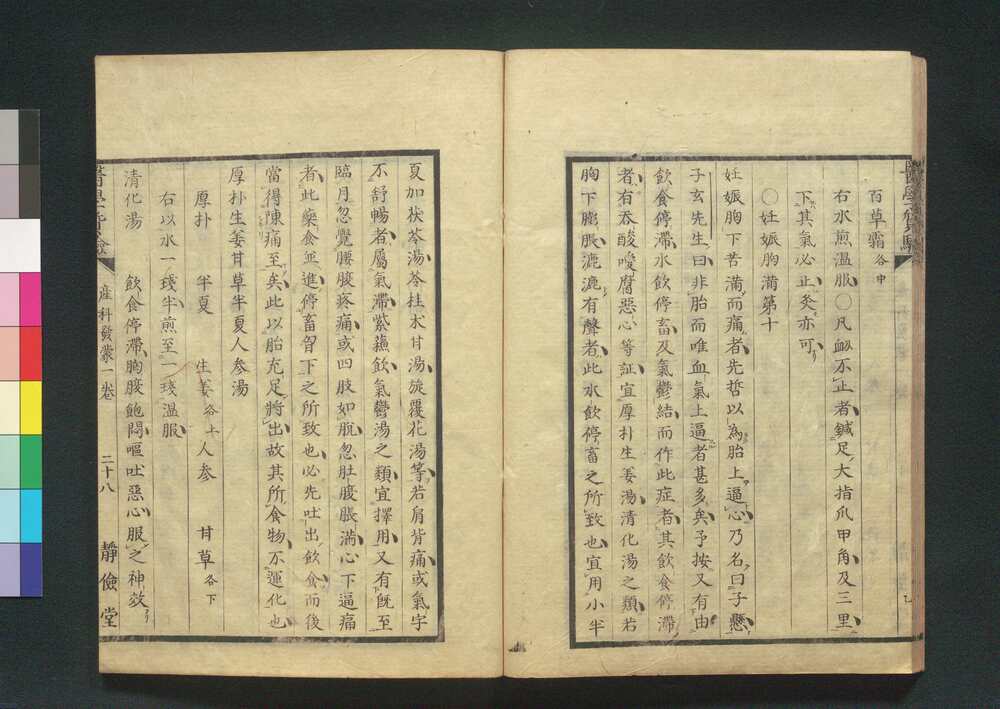 百草霜各中
右水煎温服〇凡衂不止者鍼足大指爪甲角及三里
下其氣必止灸亦可
〇妊娠胸滿第十
妊娠胸下苦滿而痛者先哲以為胎上逼心乃名曰子懸
子玄先生曰非胎而唯血氣上逼者甚多矣予按又有由
飲食停滯水飲停畜及氣鬱結而作此症者其飲食停滯
者有吞酸噯腐惡心等証宜厚朴生姜湯清化湯之類若
胸下膨脹漉漉有聲者此水飲停畜之所致也宜用小半
夏加茯苓湯苓桂朮甘湯旋覆花湯等若肩背痛或氣宇
不舒暢者屬氣滯紫蘓飲氣鬱湯之類宜擇用又有旣至
臨月忽覺腰腹疼痛或四肢如脫忽肚腹脹滿心下逼痛
者此藥食並進停畜胃下之所致也必先吐出飲食而後
當得陳痛至矣此以胎充足將出故其所食物不運化也
厚朴生姜甘草半夏人参湯
厚朴 半夏 生姜各上 人参 甘草各下
右以水一琖半煎至一琖温服
清化湯 飲食停滯胸膨飽悶嘔吐惡心服之神效
產科發蒙一卷 二十八 靜儉堂